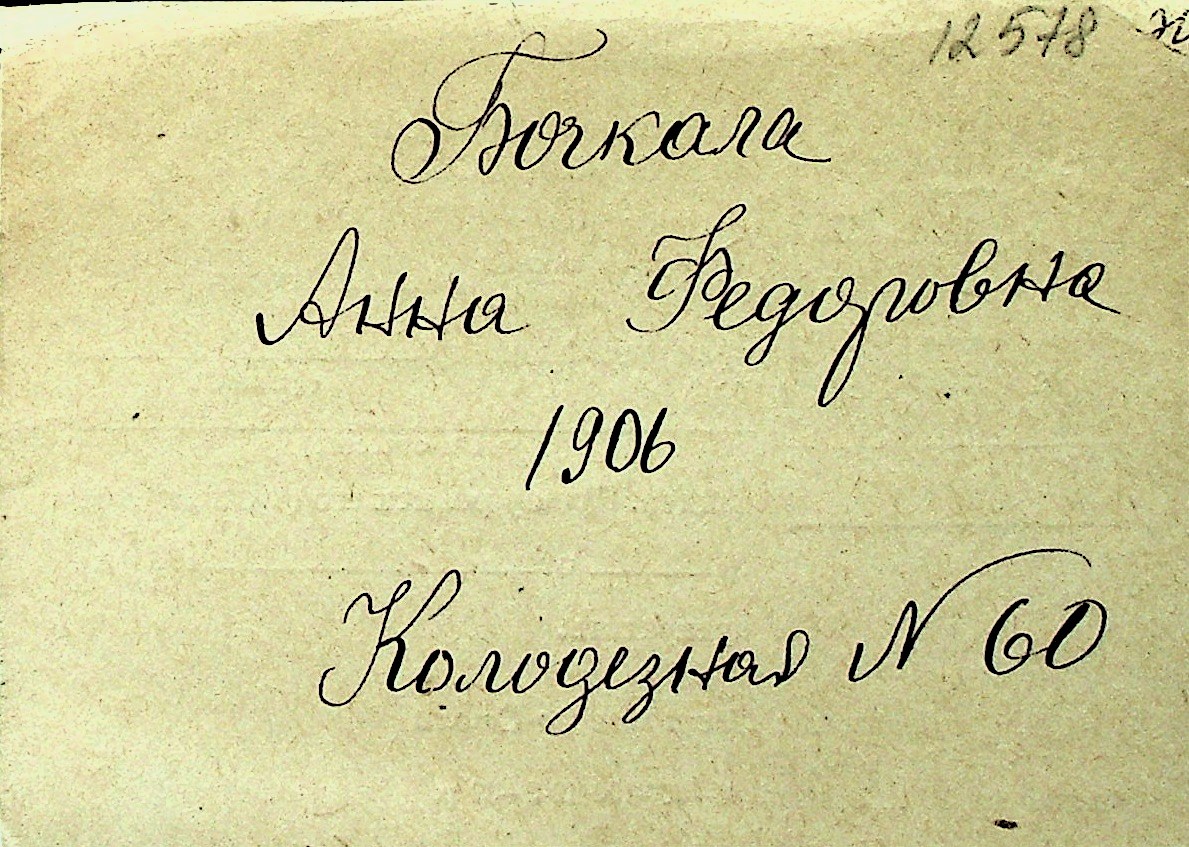 12578
Бочкала
Анна Федоровна
1906
Колодезная N 60